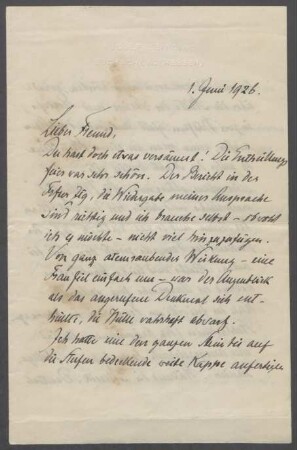 1. Juni 1926.
Lieber Freund,
Du hast doch etwas versäumt! Die Enthüllungs
feier war sehr schön. Der Bericht in der
Ztg, die Wiedergabe meiner Ansprache
sind richtig und ich brauche selbst – obwohl
ich es möchte – nicht viel hinzuzufügen.
Von ganz atemraubender Wirkung – eine
Frau fiel einfach um – war der Augenblick
als das Denkmal sich ent-
hüllte, die Hülle abwarf.
Ich hatte um den ganzen Stein bis auf
die Stufen bedeckende weite Kappe anfertigen